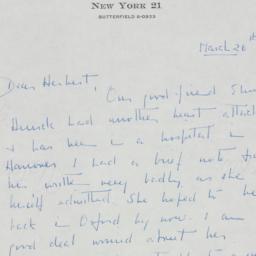 NEW YORK 21
BUTTERFIELD 8-0933
March 26th
Dear Herbert,
Our good friend
had another heart attack
& has been in a hospital in
Hanover I had a brief note from
her written very badly as she
herself admitted. She hoped to be
back in Oxford by now. I am
good deal worried about her